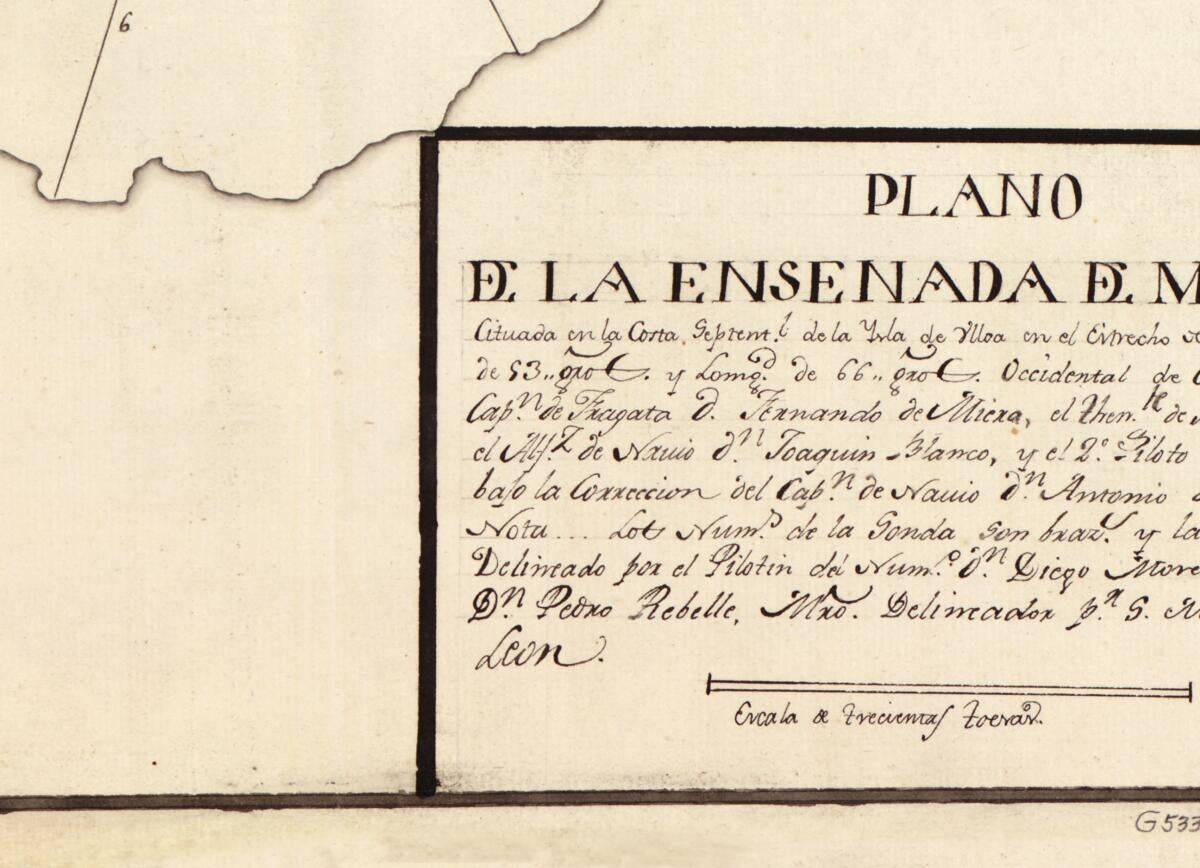 6
PLANO
DE LA ENSENADA DE M
Cituada en la Costa Septent.l de la Ysla de Ulloa en el Estrecho
de 53.. gro y Lomg.d de 66.. gro Occidental de
Cap.n de Fragata d. Fernando de Miera, el Then.te de
el Alf.z de Navio d.n Joaquin Blanco, y el 2.o Piloto
bajo la Correccion del Cap.n de Navio d.n Antonio
Nota... Los Num.s de la Sonda son braz.s y la
Delineado por el Pilotin del Num.o d.n Diego More
D.n Pedro Rebelle, Mro. Delineador p.r S. M
Leon.
Escala de trecientas toesas.
G 533